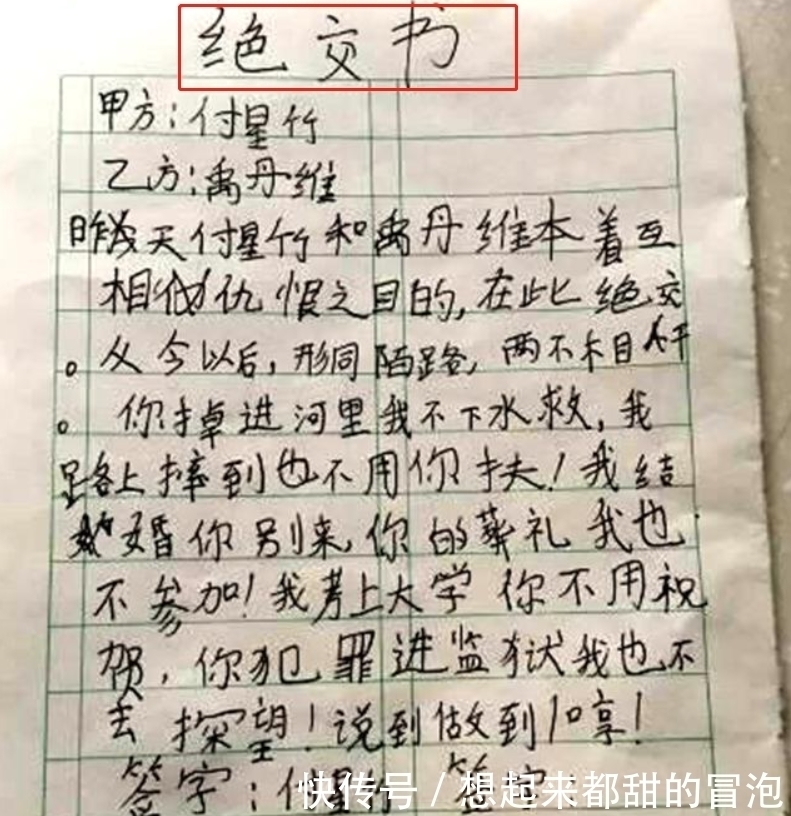 绝交书
甲方：付星竹
乙方：禹丹维
昨天付星竹和禹丹维本着互
相仇恨之目的，在此绝交
。从今以后，形同陌路，两不相干
。你掉进河里我不下水救，我
路上摔到也不用你扶！我结
婚你别来，你的葬礼我也
不参加！我考上大学你不用祝
贺，你犯罪进监狱我也不
去探望！说到做到！
签字：付星竹 签字：
快传号 / 想起来都甜的冒泡